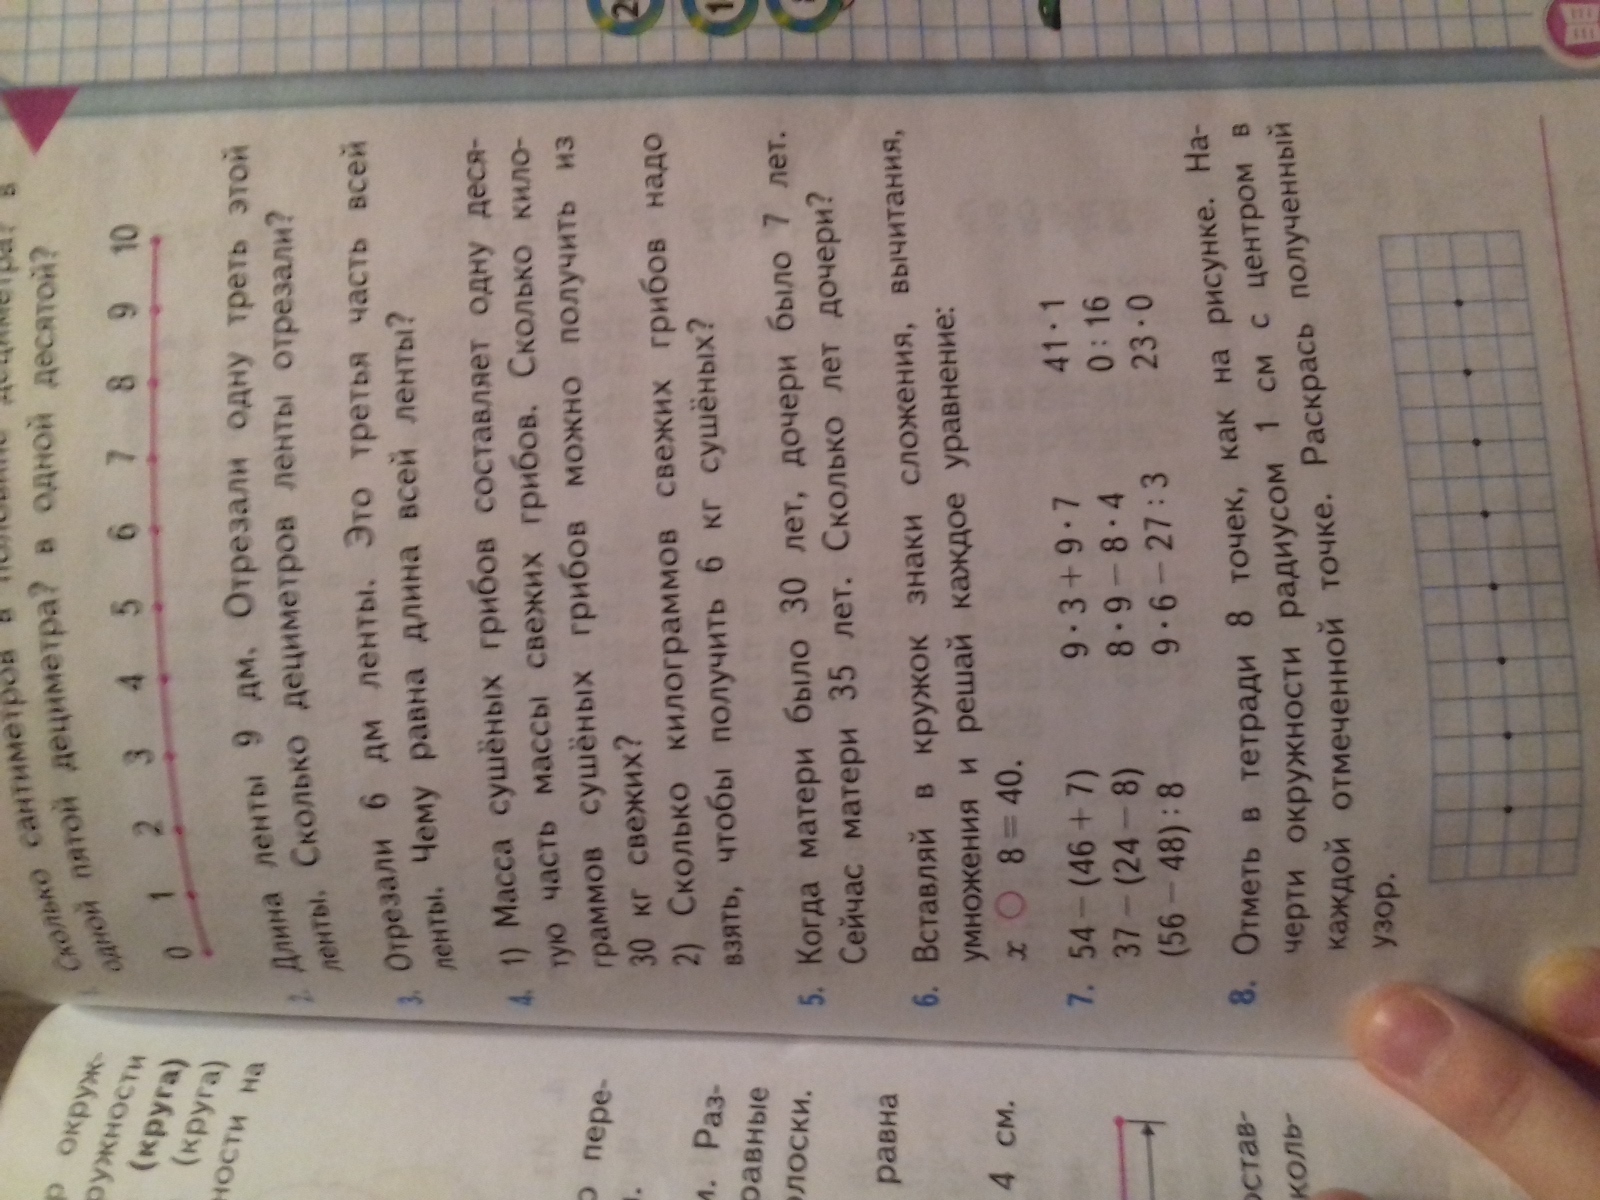 Сколько сантиметров в половине дециметра? в
одной пятой дециметра? в одной десятой?
0 1 2 3 4 5 6 7 8 9 10
2. Длина ленты 9 дм. Отрезали одну треть этой
ленты. Сколько дециметров ленты отрезали?
3. Отрезали 6 дм ленты. Это третья часть всей
ленты. Чему равна длина всей ленты?
4. 1) Масса сушёных грибов составляет одну деся-
тую часть массы свежих грибов. Сколько кило-
граммов сушёных грибов можно получить из
30 кг свежих?
2) Сколько килограммов свежих грибов надо
взять, чтобы получить 6 кг сушёных?
5. Когда матери было 30 лет, дочери было 7 лет.
Сейчас матери 35 лет. Сколько лет дочери?
6. Вставляй в кружок знаки сложения, вычитания,
умножения и решай каждое уравнение:
x ○ 8 = 40.
7. 54 − (46 + 7) 9 · 3 + 9 · 7 41 · 1
37 − (24 − 8) 8 · 9 − 8 · 4 0 : 16
(56 − 48) : 8 9 · 6 − 27 : 3 23 · 0
8. Отметь в тетради 8 точек, как на рисунке. На-
черти окружности радиусом 1 см с центром в
каждой отмеченной точке. Раскрась полученный
узор.
окруж-
(круга)
(круга)
ности на
пере-
Раз-
равные
равна
4 см.